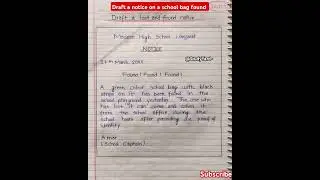 Draft a notice on a school bag found
Draft a lost and found notice
Modern High School
NOTICE
21st March 2025
Found! Found! Found!
A green colour school bags with black
strips on it has been found in the
school playground yesterday. The one who
has lost it can come and collect it
from the school office during the
school hours after providing the proof of
identity.
(School Captain)
Subscribe